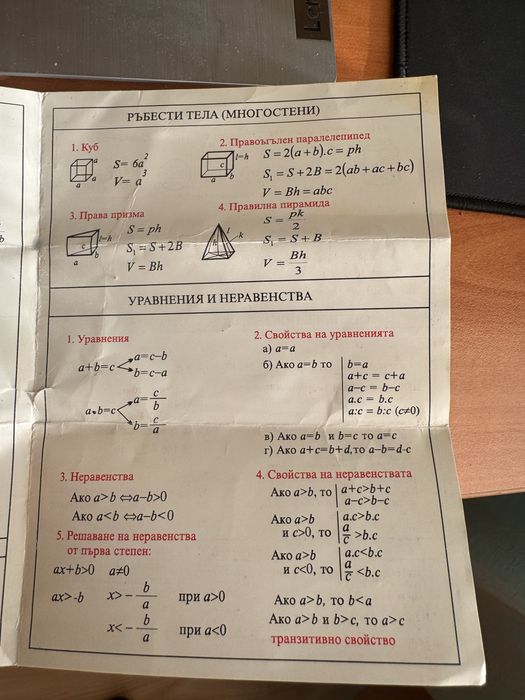 Len
РЪБЕСТИ ТЕЛА (МНОГОСТЕНИ)
1. Куб
a
a
a
S= 6a²
V= a³
2. Правоъгълен паралелепипед
l=h
c
b
a
S = 2(a+b).c = ph
S₁ = S+2B = 2(ab+ac+bc)
V = Bh = abc
3. Права призма
l=h
c
b
a
S = ph
S₁ = S+2B
V = Bh
4. Правилна пирамида
l
k
h
S = pk/2
S₁ = S+B
V = Bh/3
УРАВНЕНИЯ И НЕРАВЕНСТВА
1. Уравнения
a+b=c
a=c–b
b=c–a
a•b=c
a= c/b
b= c/a
2. Свойства на уравненията
а) a=a
б) Ако a=b то
b=a
a+c = c+a
a–c = b–c
a.c = b.c
a:c = b:c (c≠0)
в) Ако a=b и b=c то a=c
г) Ако a+c=b+d,то a–b=d-c
3. Неравенства
Ако a>b ⇔a–b>0
Ако a<b ⇔a–b<0
4. Свойства на неравенствата
Ако a>b, то
a+c>b+c
a–c>b–c
Ако a>b
и c>0, то
a.c>b.c
a/c >b.c
Ако a>b
и c<0, то
a.c<b.c
a/c <b.c
Ако a>b, то b<a
Ако a>b и b>c, то a>c
транзитивно свойство
5. Решаване на неравенства
от първа степен:
ax+b>0 a≠0
ax>-b x>– b/a при a>0
x<– b/a при a<0